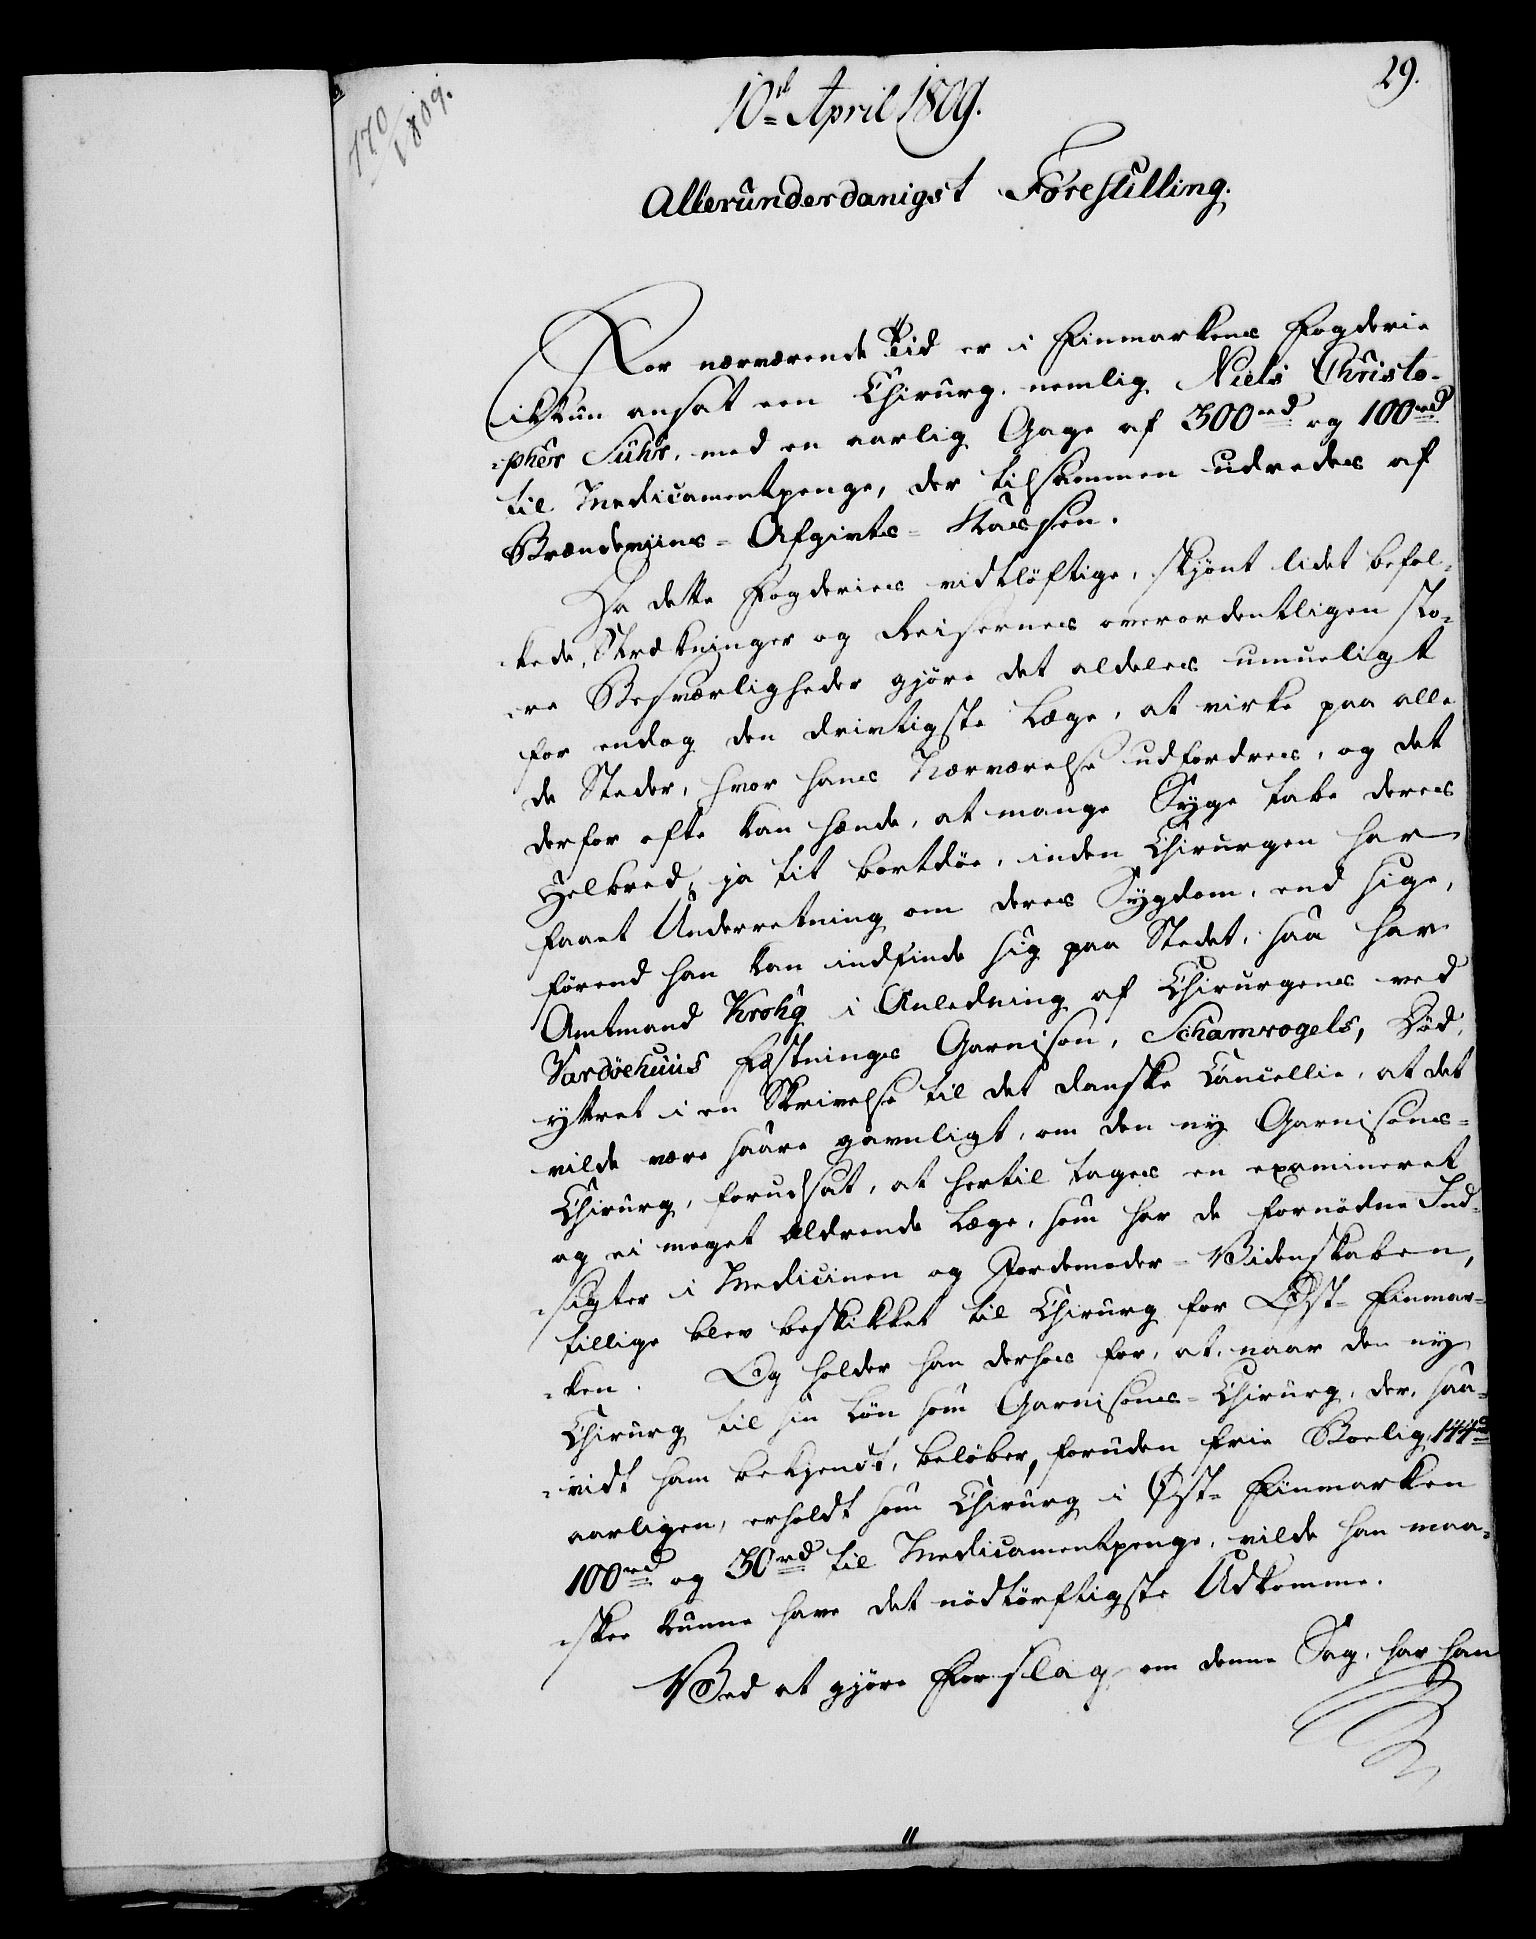 770
1809.
29.
10de April 1809.
Allerunderdanigst Forestilling.
For nærværende Tid er i Finmarkens Fogderie
ikkun ansat een Chirurg, nemlig Niels Christo-
=pher Suhr, med en aarlig Gage af 300rd og 100rd
til Medicamentpenge, der tilsammen udredes af
Brændeviins-Afgivts-Kassen.
Da dette Fogderies vidtløftige, skjønt lidet befol=
=kede, Strækninger og Reisernes overordentligen sto=
=re Besværligheder gjøre det aldeles umueligt
for endog den drivtigste Læge, at virke paa alle
de Steder, hvor hans Nærværelse udfordres, og det
derfor ofte kan hænde, at mange Syge tabe deres
Helbred, ja tit bortdøe, inden Chirurgen har
faaet Underretning om deres Sygdom, end sige,
førend han kan indfinde sig paa Stedet, saa har
Amtmand Krohg i Anledning af Chirurgens ved
Vardøehuus Fæstnings Garnison, Schamvogels, Død,
yttret i en Skrivelse til det danske Cancellie, at det
vilde være saare gavnligt, om den ny Garnisons=
Chirurg, forudsat, at hertil tages en examineret
og ei meget aldrende Læge, som har de fornødne Ind=
=sigter i Medicinen og Jordemoder-Videnskaben,
tillige blev beskikket til Chirurg for Øst-Finmar=
=ken. Og holder han derhos for, at, naar den ny
Chirurg til sin Løn som Garnisons-Chirurg, der, saa=
=vidt ham bekjendt, beløber, foruden frie Boelig, 144rd
aarligen, erholdt som Chirurg i Øst-Finmarken
100rd og 50rd til Medicamentpenge, vilde han maa=
=skee kunne have det nødtørftigste Udkomme.
Ved at gjøre Forslag om denne Sag, har han